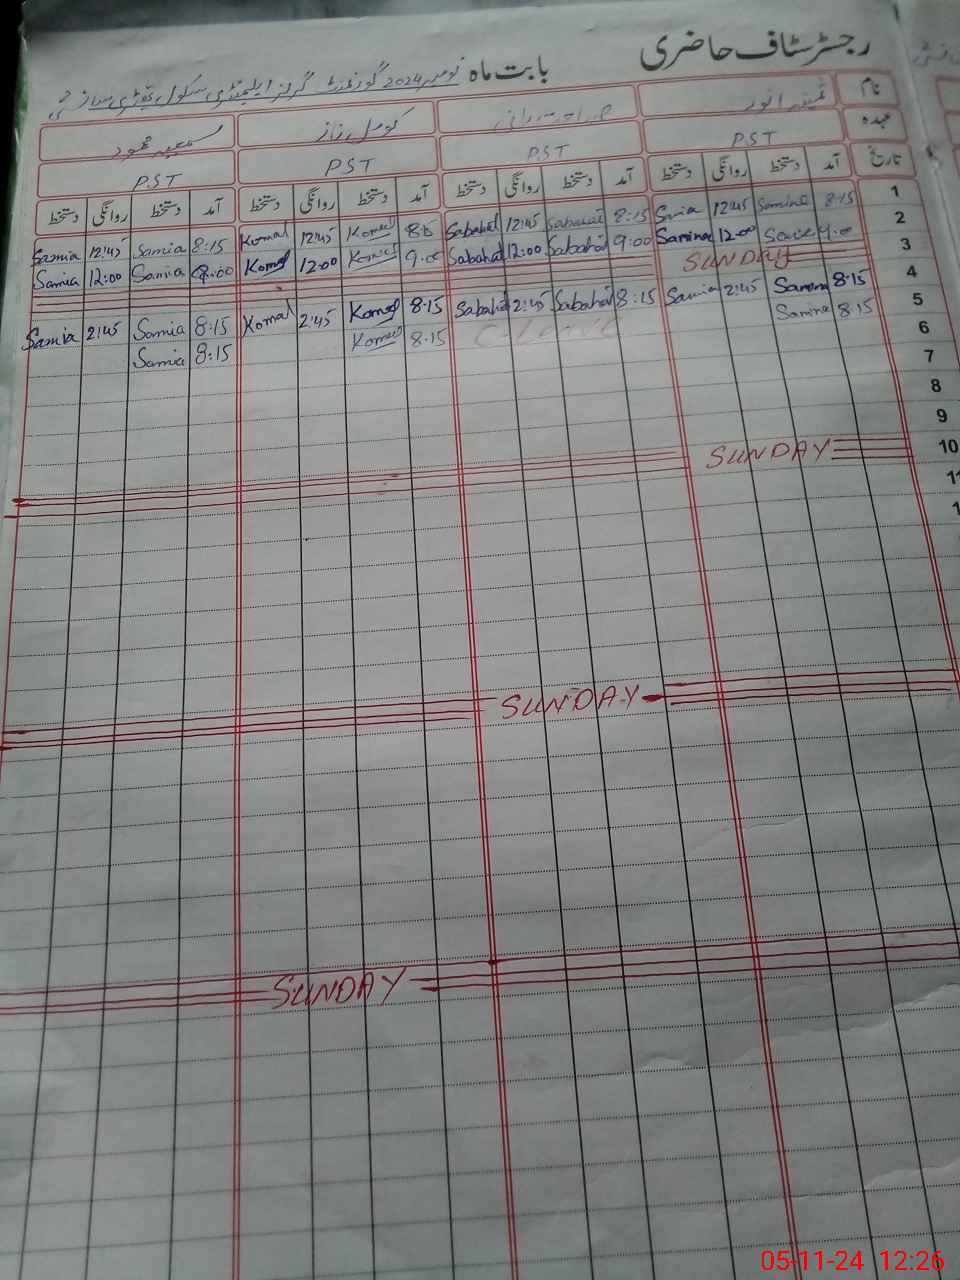 رجسٹر سٹاف حاضری
بابت ماہ نومبر 2024 گورنمنٹ گرلز ایلیمنٹری سکول
نام ثمینہ انور کومل ناز سمیعہ محمود
عہدہ PST P.S.T PST P.S.T
تاریخ آمد دستخط روانگی دستخط آمد دستخط روانگی دستخط آمد دستخط روانگی دستخط آمد دستخط روانگی دستخط
1 8:15 Samina 12:45 8:15 Sabahat 12:45 Sabahat Komal 12:45 Komal 8:15 Samia 12:45 Samia
2 9:00 12:00 Samina 9:00 Sabahat 12:00 Sabahat 9:00 Komal 12:00 Komal Samia 12:00 Samia
3 SUNDAY
4 8:15 Samina 2:45 8:15 Sabahat 2:45 Sabahat 8:15 Komal 2:45 Komal 8:15 Samia 2:45 Samia
5 8:15 Samina C-Leave 8:15 Komal 8:15 Samia
6
7
8
9
10 SUNDAY
11
SUNDAY
SUNDAY
05-11-24 12:26